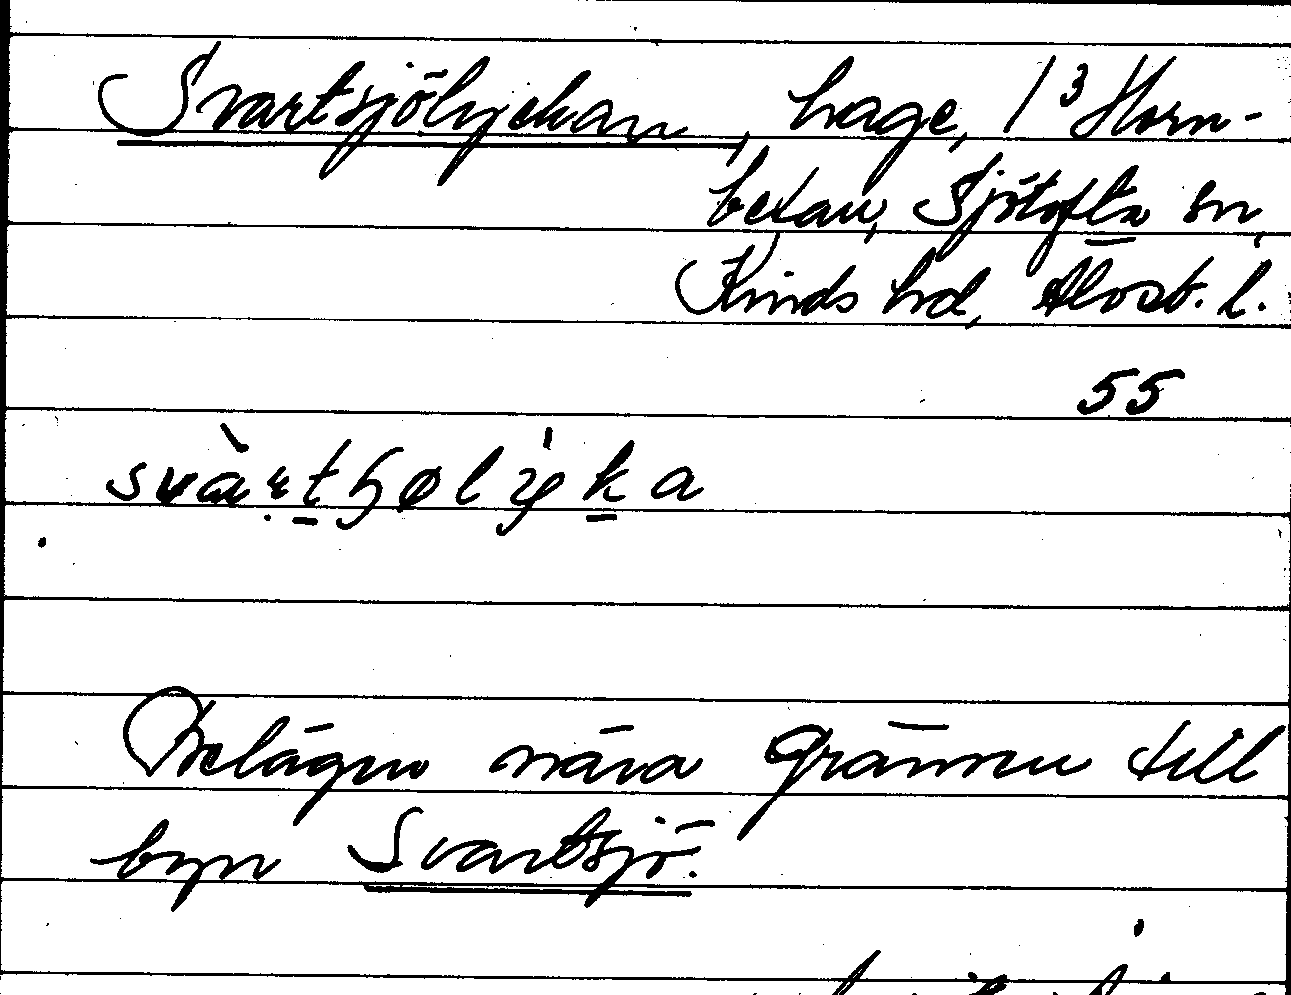 Svartsjölyckan, hage, 1³ Horn-
betan, Sjötofta sn,
Kinds hd, Älvsb. l.
55
svàrtʂølýka
Belägen nära gränsen till
byn Svartsjö.